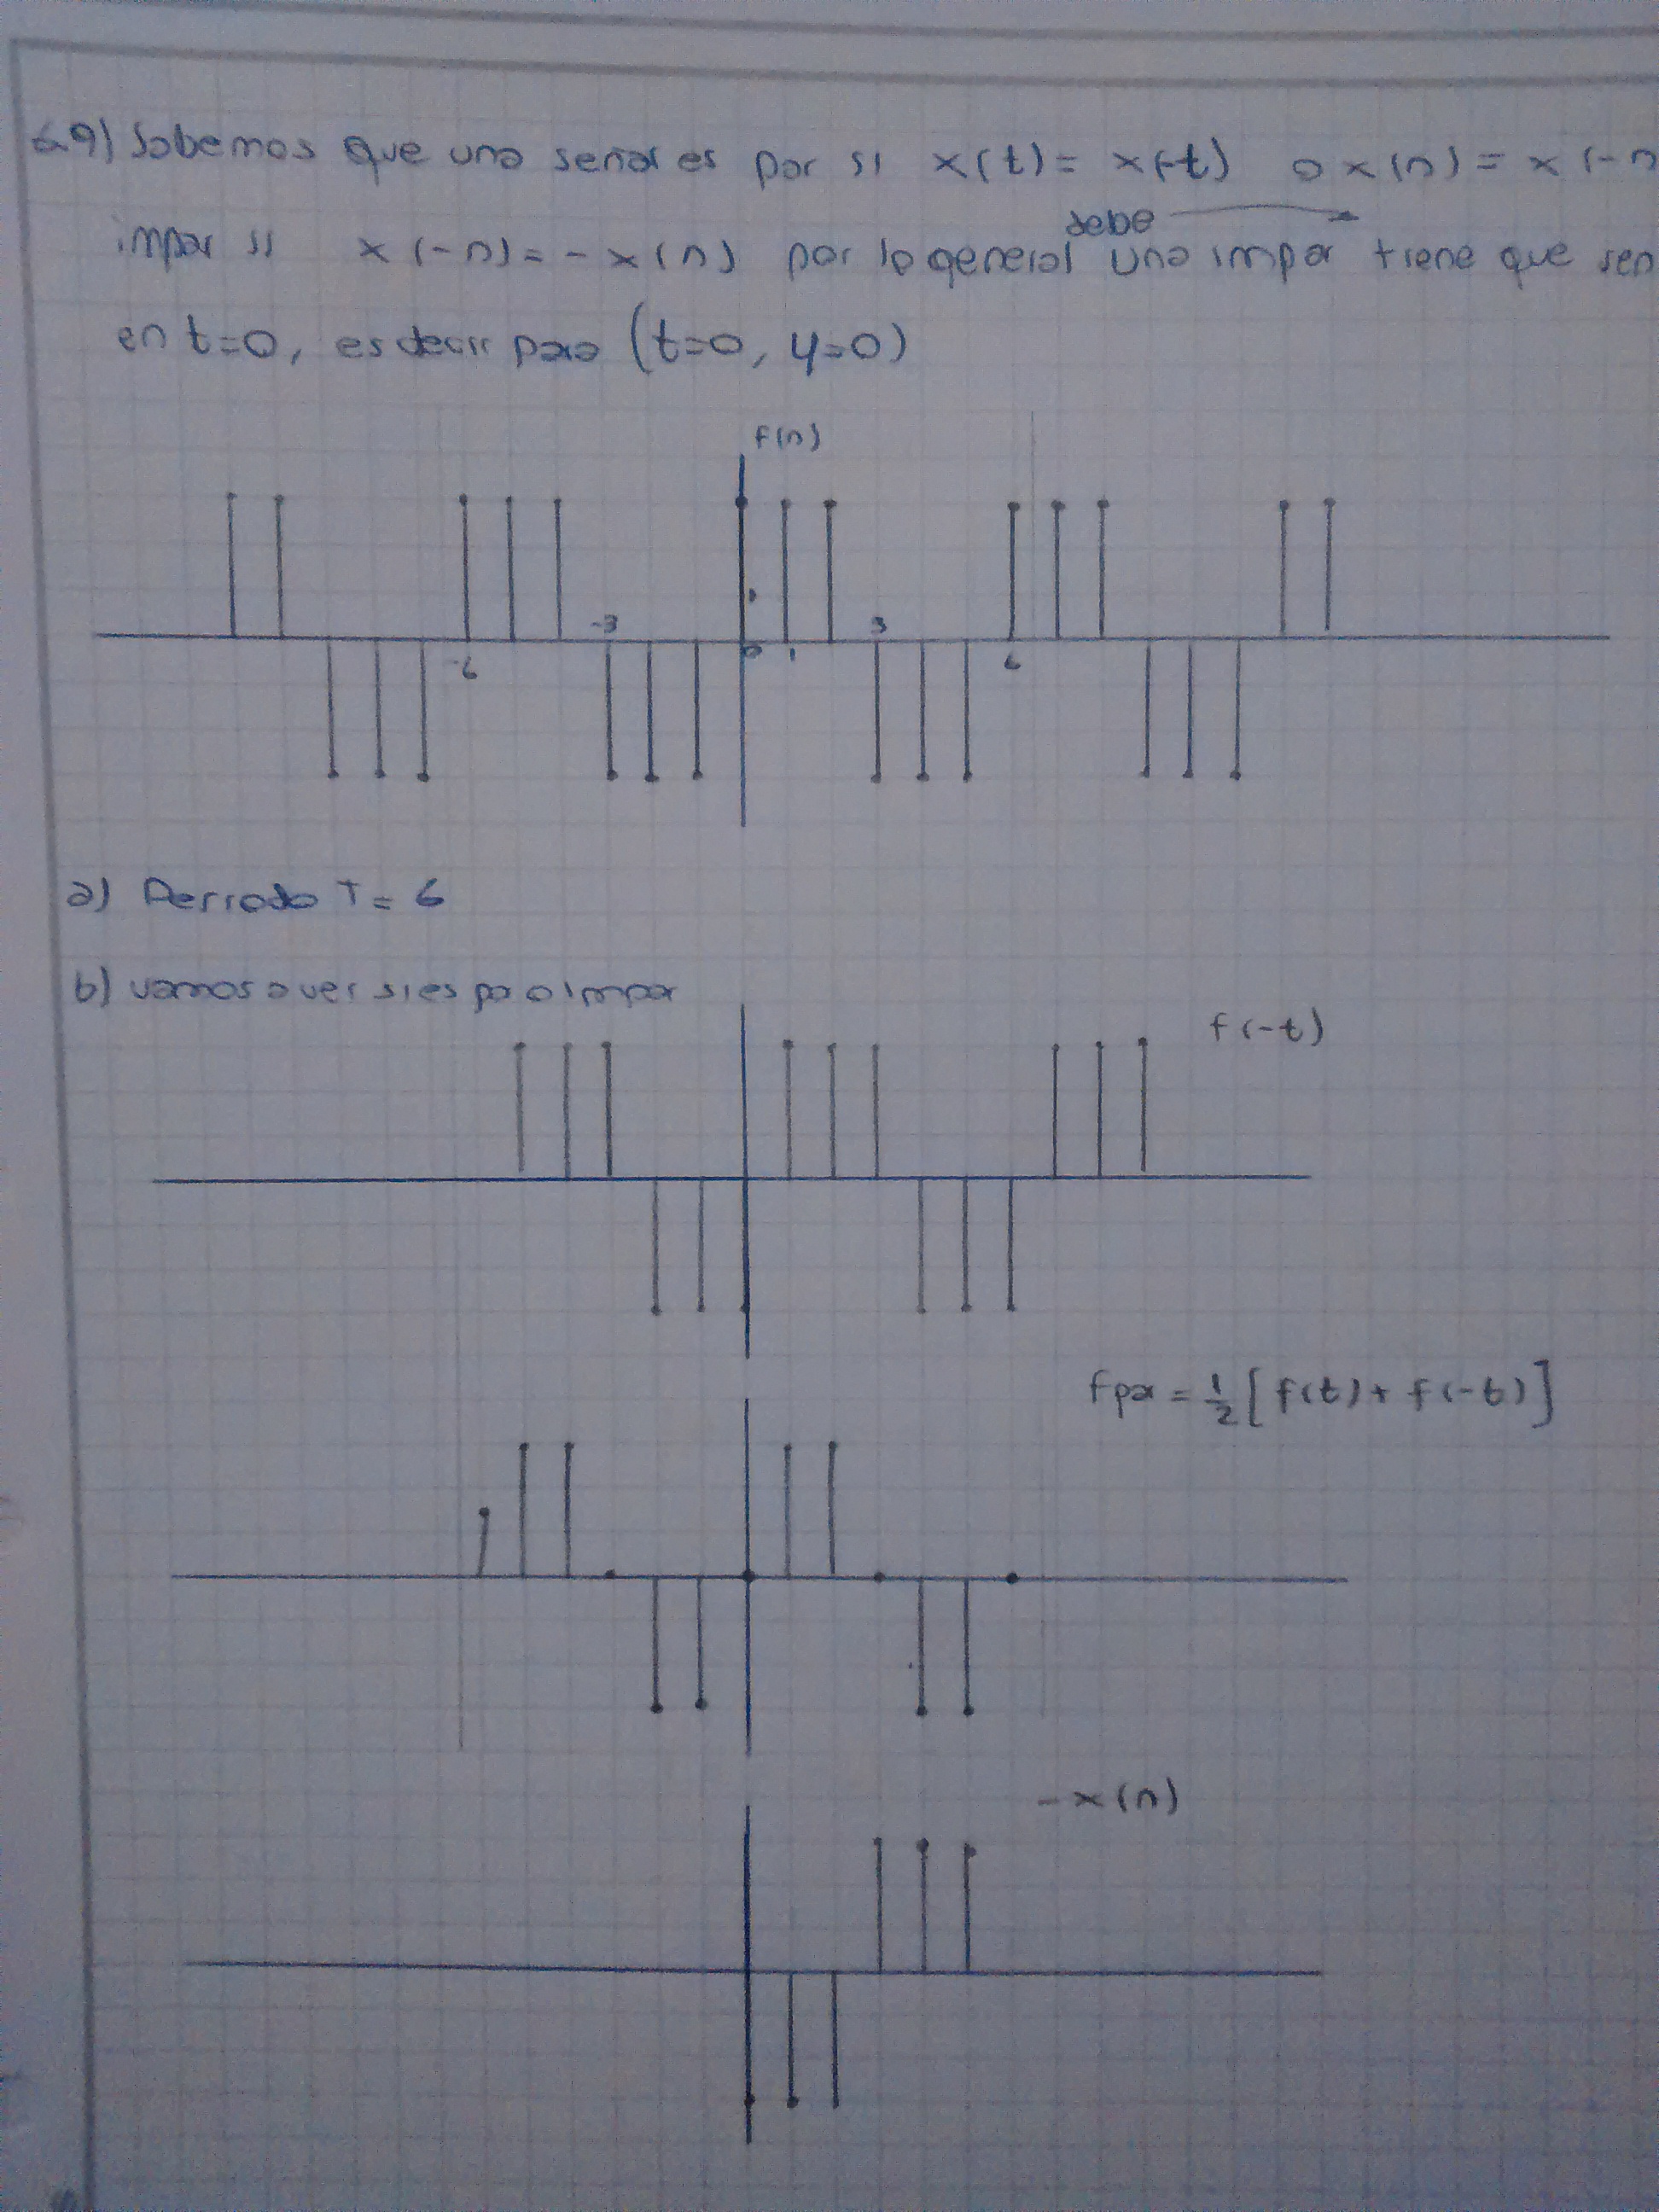 6.9) Sabemos que una señal es par si x(t) = x(-t) o x(n) = x(-n
impar si x(-n) = - x(n) por lo general debe una impar tiene que ser
en t=0, es decir para (t=0, y=0)
f(n)
-3 3
-6 0 1 6
a) Periodo T = 6
b) vamos a ver si es pa o impar
f(-t)
fpar = 1/2 [f(t) + f(-t)]
-x(n)